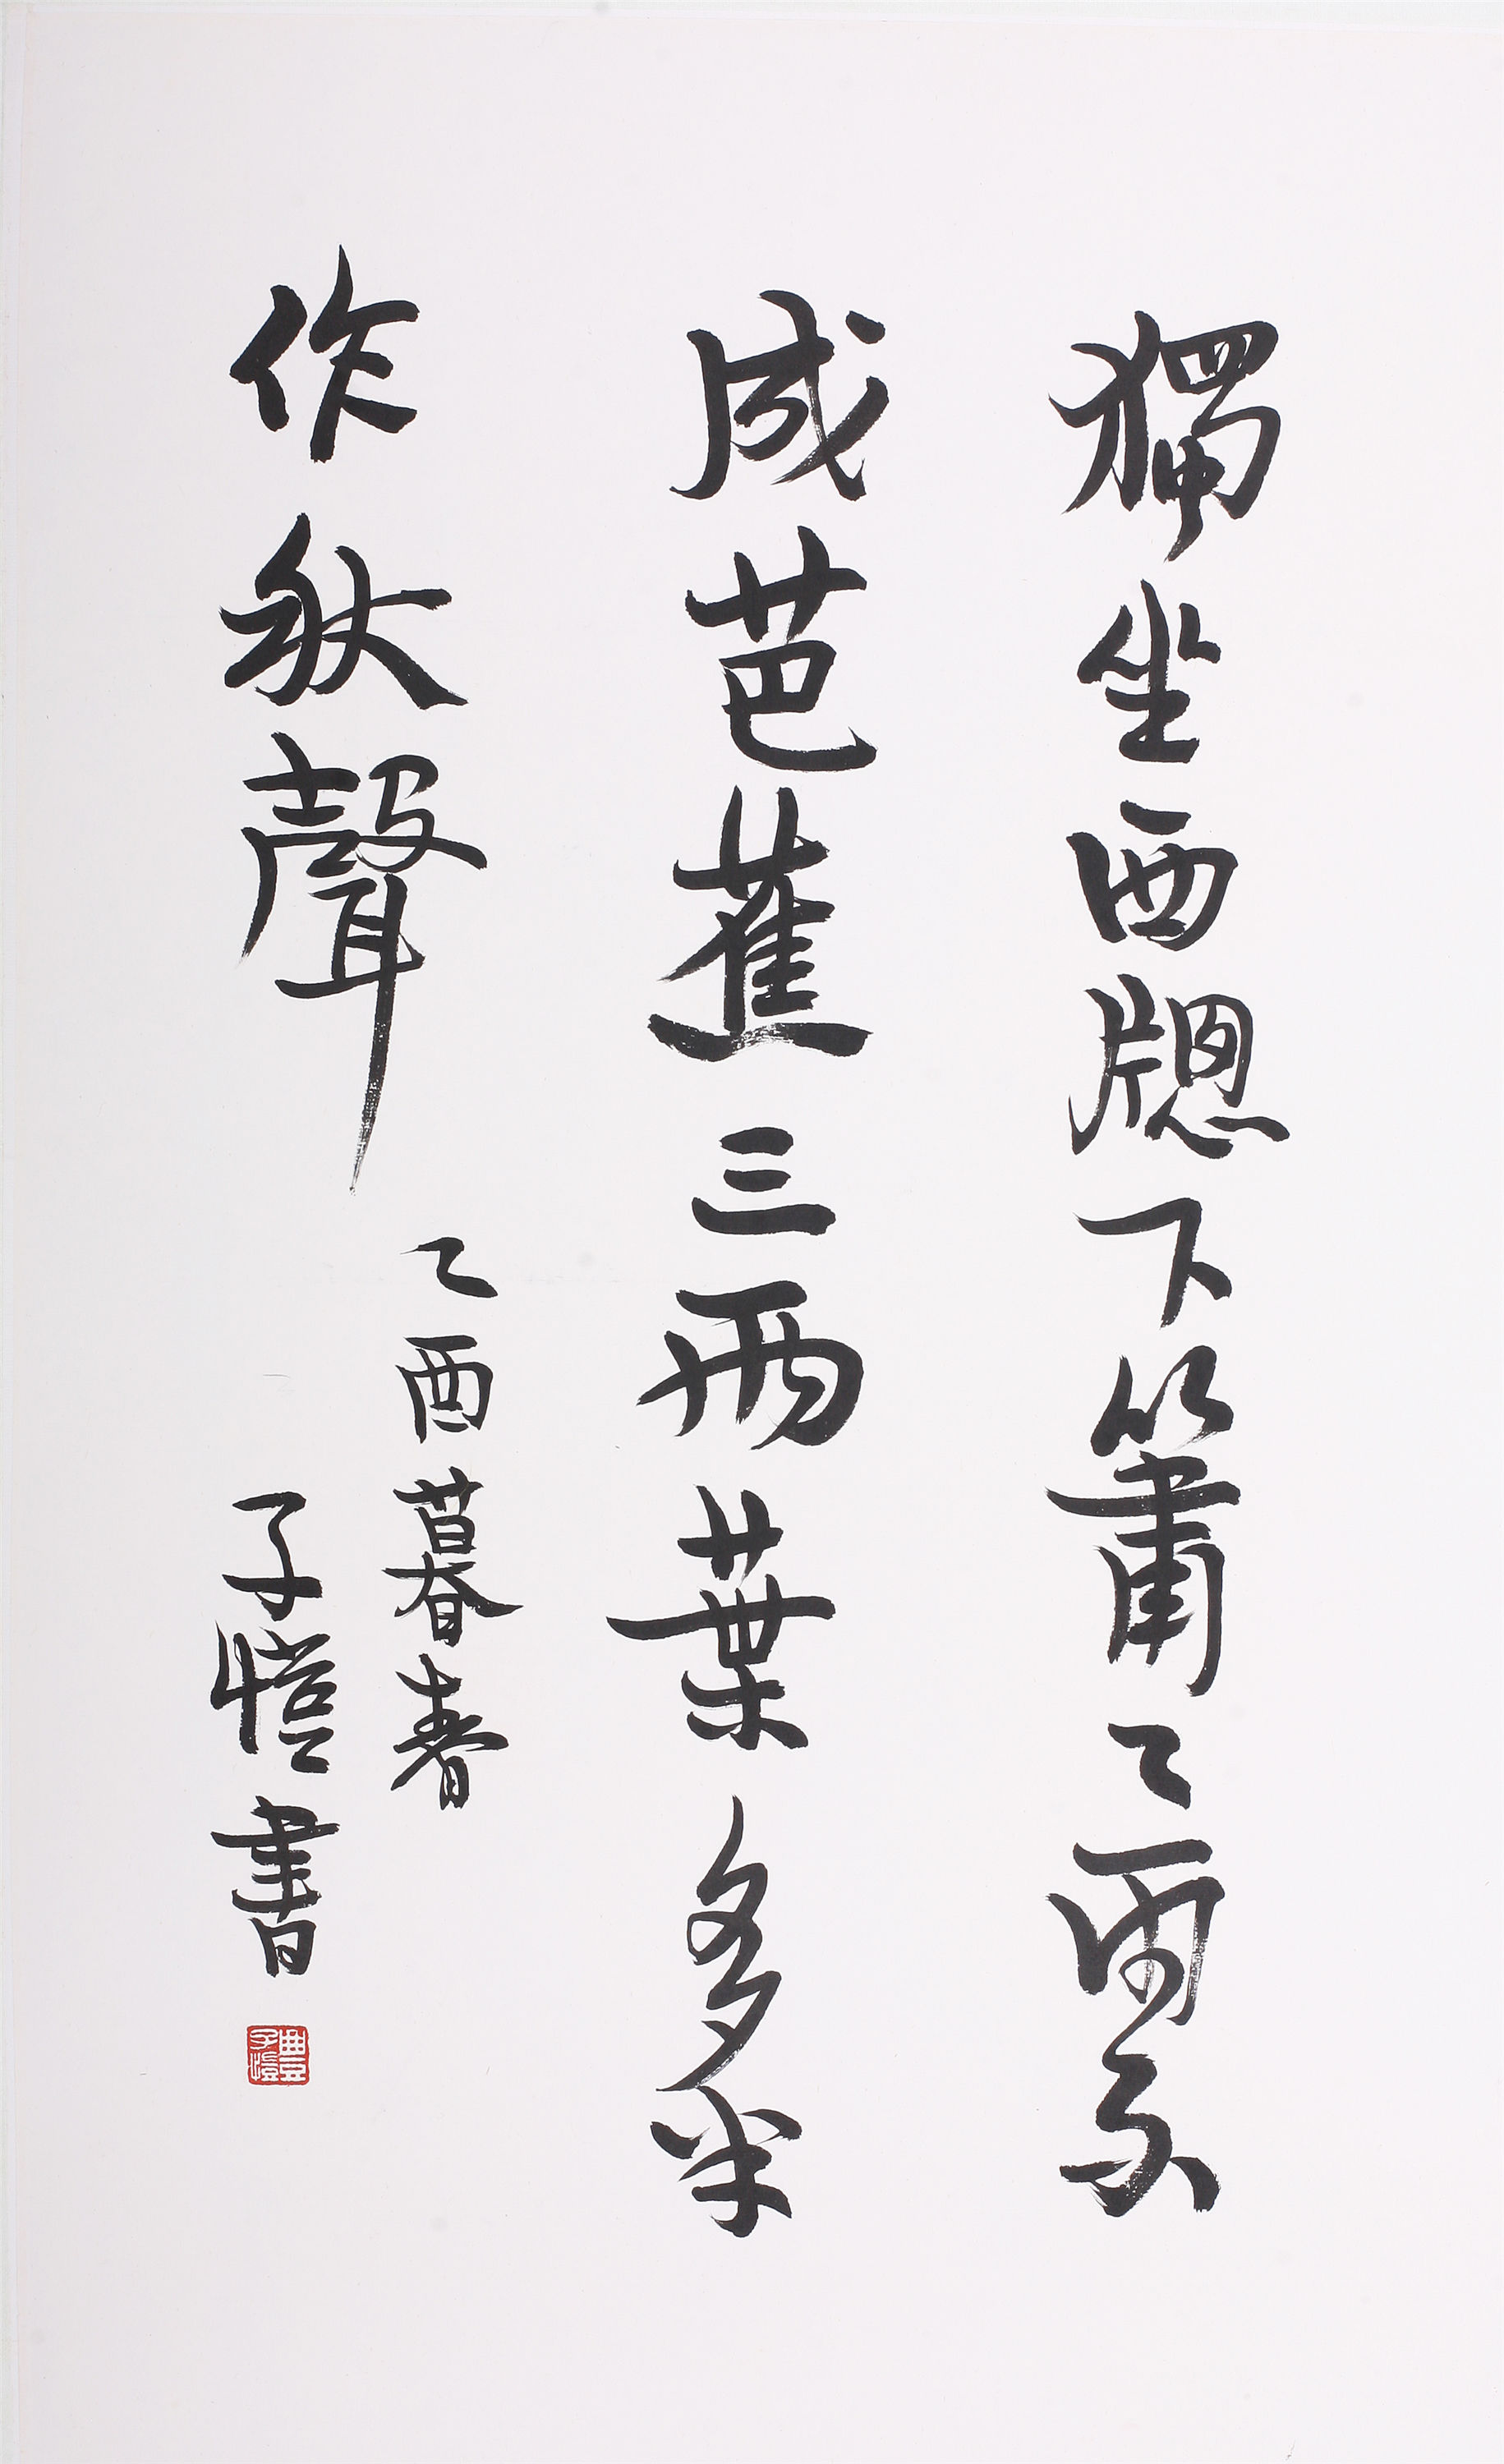 獨坐西牕下簫〻雨不
成芭蕉三兩葉多半
作秋聲
乙酉暮春
子愷書
豐子愷